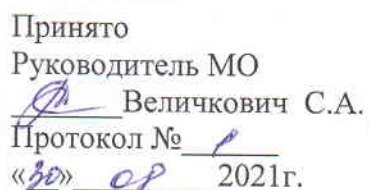 Принято
Руководитель МО
Величкович С.А.
Протокол № 1
«30» 08 2021г.